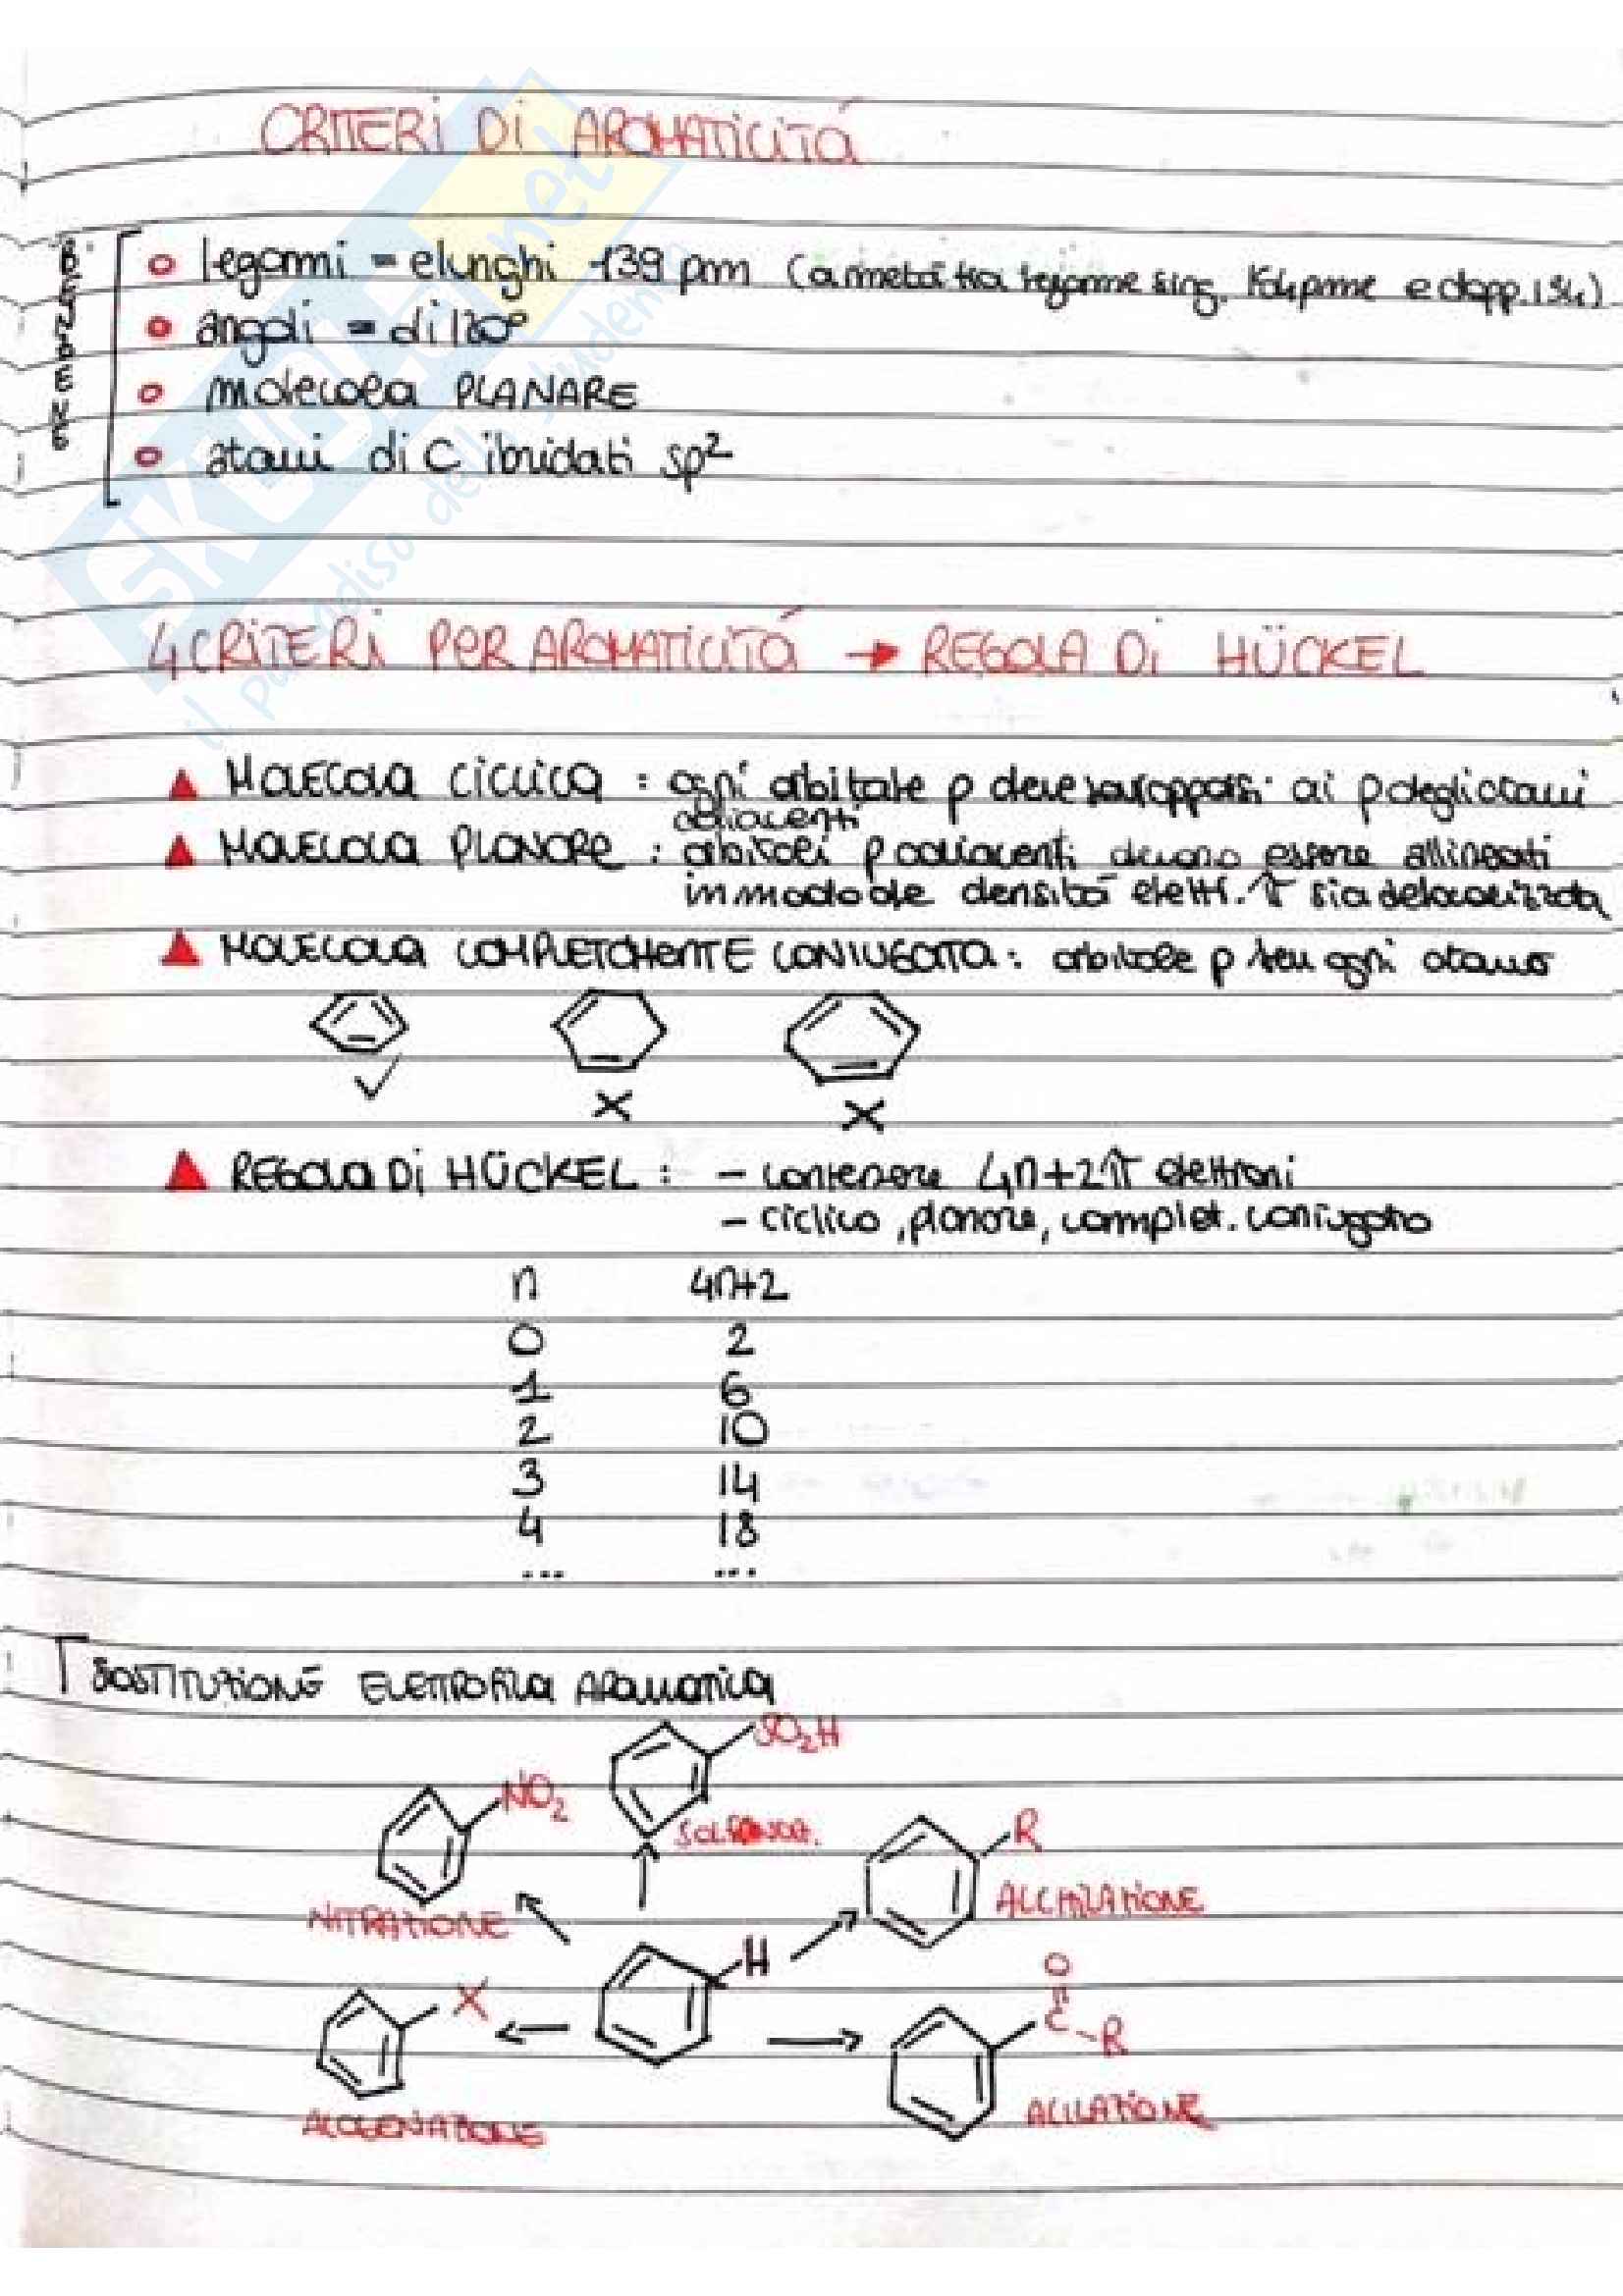 CRITERI DI AROMATICITÁ
legami = e lunghi 139 pm (a metà tra legame sing. 154 pm e e dopp. 134)
angoli = di 120°
molecola PLANARE
atomi di C ibridati sp²
4 CRITERI PER AROMATICITÁ → REGOLA DI HÜCKEL
▲ MOLECOLA CICLICA : ogni orbitale p deve sovrapporsi ai p degli atomi
adiacenti
▲ MOLECOLA PLANARE : orbitali p adiacenti devono essere allineati
in modo che densità elett. π sia delocalizzata
▲ MOLECOLA COMPLETAMENTE CONIUGATA : orbitale p su ogni atomo
✓ X X
▲ REGOLA DI HÜCKEL : - contenere 4n+2 π elettroni
- ciclico, planare, complet. coniugato
n 4n+2
0 2
1 6
2 10
3 14
4 18
... ...
SOSTITUZIONE ELETTROFILA AROMATICA
SO₂H
NO₂
SOLFONAZ.
R
ALCHILAZIONE
NITRAZIONE
H
O
X
C-R
ALOGENAZIONE
ACILAZIONE
SKUOLA.net
il paradiso dello studente